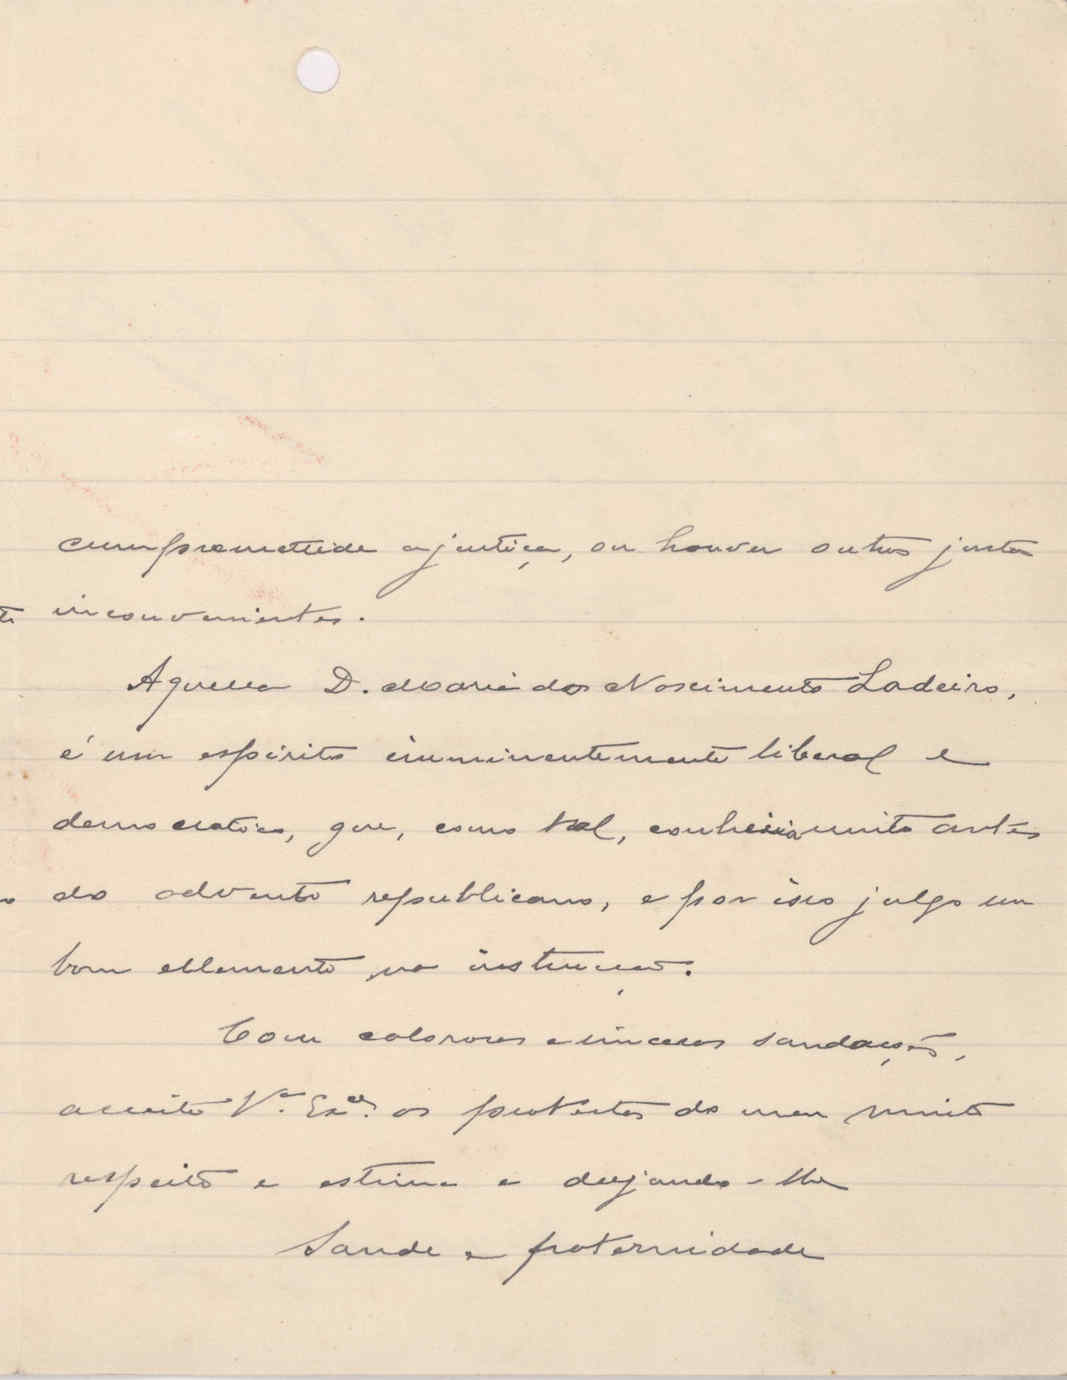 cumpromettida a justiça, ou houver outros justos
inconvenientes.
Aquella D. Maria dos Nascimento Ladeiro,
é um espirito imminentemente liberal e
democratico, que, como tal, conhecia muito antes
do advento republicano, e por isso julgo um
bom ellemento na instrucção.
Com calorosas e sinceras saudações,
acceite V.ª Ex.cia os protestos do meu muito
respeito e estima e dejando-lhe
Saude e fraternidade